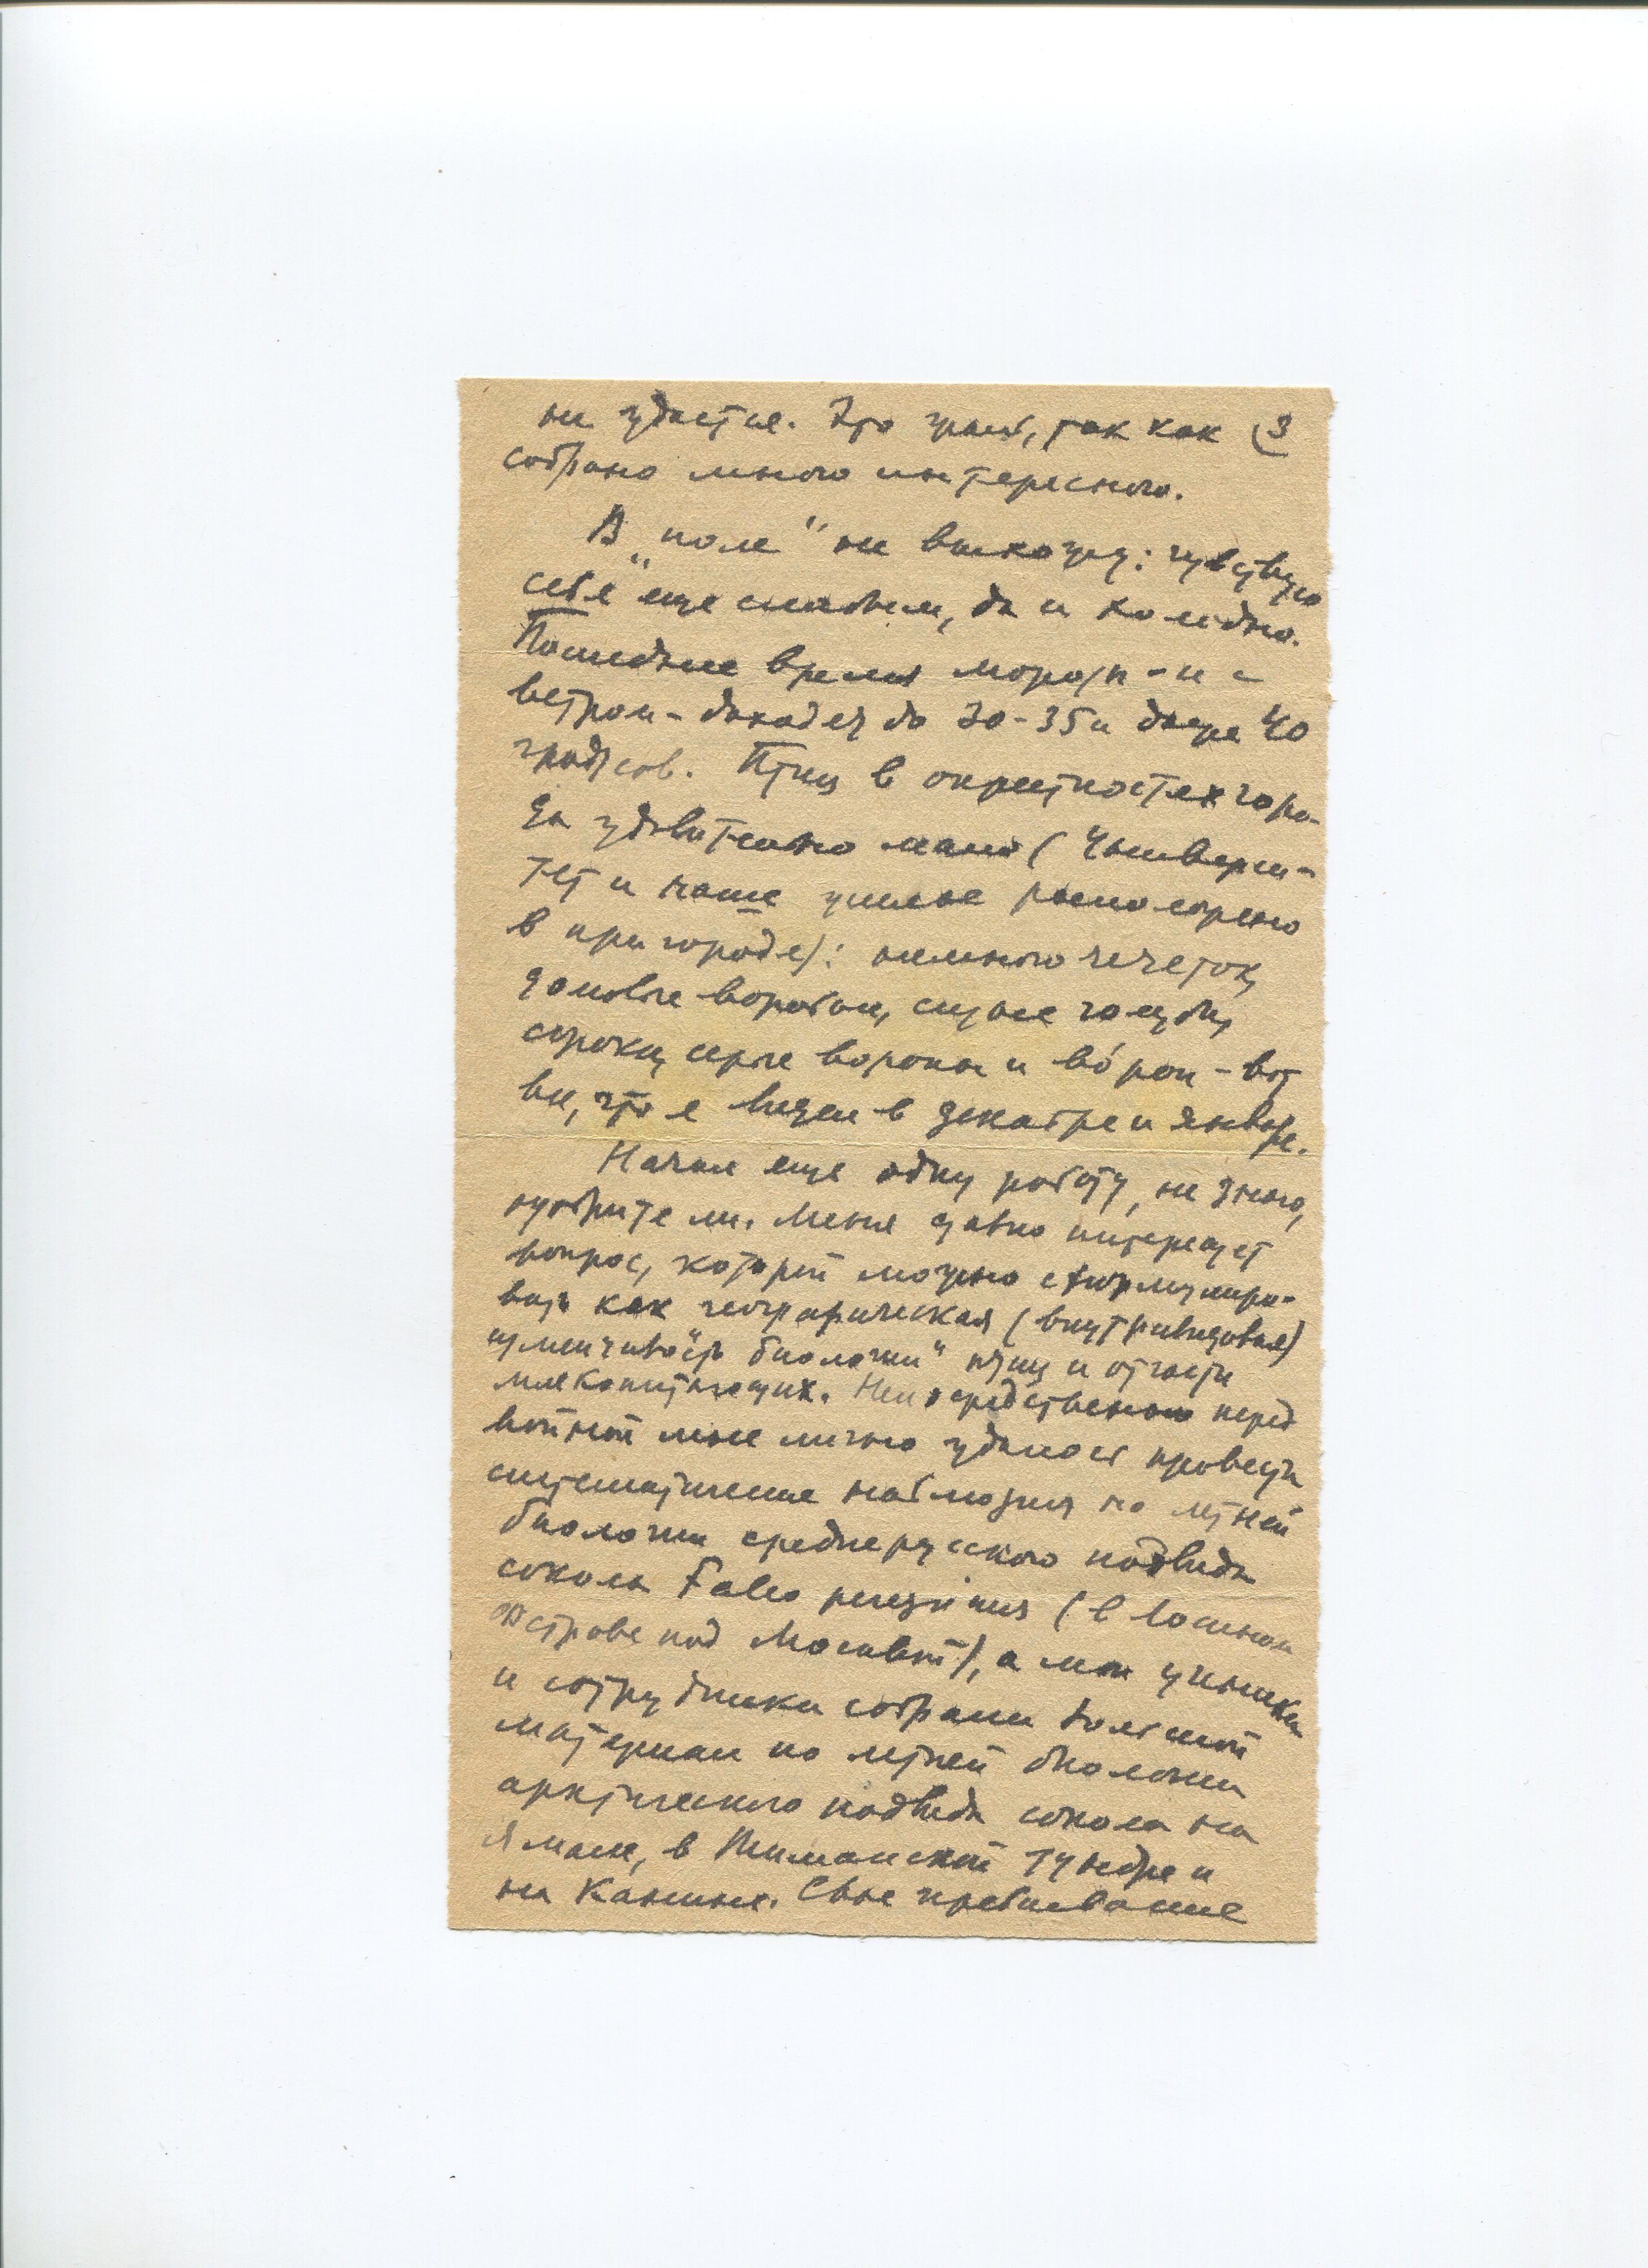 не удастся. Это жаль, так как (3
собрано много интересного.
В „поле" не выхожу: чувствую
себя еще слабым, да и холодно.
Последнее время морозы - и с
ветром - доходят до 30-35 и даже 40
градусов. Птиц в окрестностях горо-
да удивительно мало (Университ-
тет и наше жилье расположено
в пригороде): немного чечеток,
домовые воробьи, сизые голуби,
сороки, серые вороны и во́рон - вот
все, что я видел в декабре и январе.
Начал еще одну работу, не знаю,
одобрите ли. Меня давно интересует
вопрос, который можно сформулиро-
вать как географическая (внутривидовая)
изменчивость „биологии" птиц и отчасти
млекопитающих. Непосредственно перед
войной мне лично удалось провести
систематические наблюдения по летней
биологии среднерусского подвида
сокола Falco peregrinus (в Лосином
Острове под Москвой), а мои ученики
и сотрудники собрали большой
материал по летней биологии
арктического подвида сокола на
Ямале, в Тиманской тундре и
на Канине. Свое пребывание